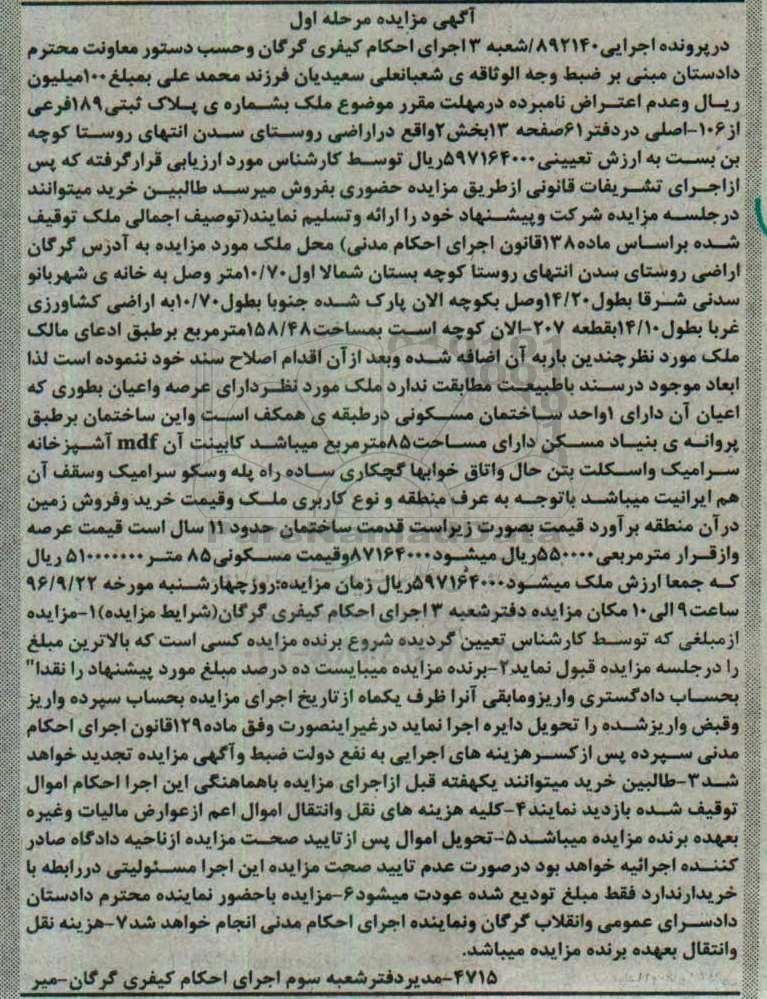 آگهی مزایده مرحله اول
درپرونده اجرایی۸۹۲۱۴۰/شعبه ۳ اجرای احکام کیفری گرگان وحسب دستور معاونت محترم
دادستان مبنی بر ضبط وجه الوثاقه ی شعبانعلی سعیدیان فرزند محمد علی بمبلغ۱۰۰میلیون
ریال وعدم اعتراض نامبرده درمهلت مقرر موضوع ملک بشماره ی پلاک ثبتی۱۸۹فرعی
از۱۰۶-اصلی دردفتر۶۱صفحه ۱۳بخش۲واقع دراراضی روستای سدن انتهای روستا کوچه
بن بست به ارزش تعیینی۵۹۷۱۶۴۰۰۰ریال توسط کارشناس مورد ارزیابی قرارگرفته که پس
ازاجرای تشریفات قانونی ازطریق مزایده حضوری بفروش میرسد طالبین خرید میتوانند
درجلسه مزایده شرکت وپیشنهاد خود را ارائه وتسلیم نمایند(توصیف اجمالی ملک توقیف
شده براساس ماده۱۳۸قانون اجرای احکام مدنی) محل ملک مورد مزایده به آدرس گرگان
اراضی روستای سدن انتهای روستا کوچه بستان شمالا اول۱۰/۷۰متر وصل به خانه ی شهربانو
سدنی شرقا بطول۱۴/۲۰وصل بکوچه الان پارک شده جنوبا بطول۱۰/۷۰به اراضی کشاورزی
غربا بطول۱۴/۱۰بقطعه ۲۰۷-الان کوچه است بمساحت۱۵۸/۴۸مترمربع برطبق ادعای مالک
ملک مورد نظرچندین باربه آن اضافه شده وبعد ازآن اقدام اصلاح سند خود ننموده است لذا
ابعاد موجود درسند باطبیعت مطابقت ندارد ملک مورد نظردارای عرصه واعیان بطوری که
اعیان آن دارای ۱واحد ساختمان مسکونی درطبقه ی همکف است واین ساختمان برطبق
پروانه ی بنیاد مسکن دارای مساحت۸۵مترمربع میباشد کابینت آن mdf آشپزخانه
سرامیک واسکلت بتن حال واتاق خوابها گچکاری ساده راه پله وسکو سرامیک وسقف آن
هم ایرانیت میباشد باتوجه به عرف منطقه و نوع کاربری ملک وقیمت خرید وفروش زمین
درآن منطقه برآورد قیمت بصورت زیراست قدمت ساختمان حدود ۱۱ سال است قیمت عرصه
وازقرار مترمربعی۵۵۰۰۰۰ریال میشود۸۷۱۶۴۰۰۰وقیمت مسکونی۸۵ متر۵۱۰۰۰۰۰۰۰ ریال
که جمعا ارزش ملک میشود۵۹۷۱۶۴۰۰۰ریال زمان مزایده:روزچهارشنبه مورخه ۹۶/۹/۲۲
ساعت۹ الی۱۰ مکان مزایده دفترشعبه ۳ اجرای احکام کیفری گرگان(شرایط مزایده)۱-مزایده
ازمبلغی که توسط کارشناس تعیین گردیده شروع برنده مزایده کسی است که بالاترین مبلغ
را درجلسه مزایده قبول نماید۲-برنده مزایده میبایست ده درصد مبلغ مورد پیشنهاد را نقدا"
بحساب دادگستری واریزومابقی آنرا ظرف یکماه ازتاریخ اجرای مزایده بحساب سپرده واریز
وقبض واریزشده را تحویل دایره اجرا نماید درغیراینصورت وفق ماده۱۲۹قانون اجرای احکام
مدنی سپرده پس ازکسرهزینه های اجرایی به نفع دولت ضبط وآگهی مزایده تجدید خواهد
شد۳-طالبین خرید میتوانند یکهفته قبل ازاجرای مزایده باهماهنگی این اجرا احکام اموال
توقیف شده بازدید نمایند۴-کلیه هزینه های نقل وانتقال اموال اعم ازعوارض مالیات وغیره
بعهده برنده مزایده میباشد۵-تحویل اموال پس ازتایید صحت مزایده ازناحیه دادگاه صادر
کننده اجرائیه خواهد بود درصورت عدم تایید صحت مزایده این اجرا مسئولیتی دررابطه با
خریدارندارد فقط مبلغ تودیع شده عودت میشود۶-مزایده باحضور نماینده محترم دادستان
دادسرای عمومی وانقلاب گرگان ونماینده اجرای احکام مدنی انجام خواهد شد۷-هزینه نقل
وانتقال بعهده برنده مزایده میباشد.
۴۷۱۵-مدیردفترشعبه سوم اجرای احکام کیفری گرگان-میر